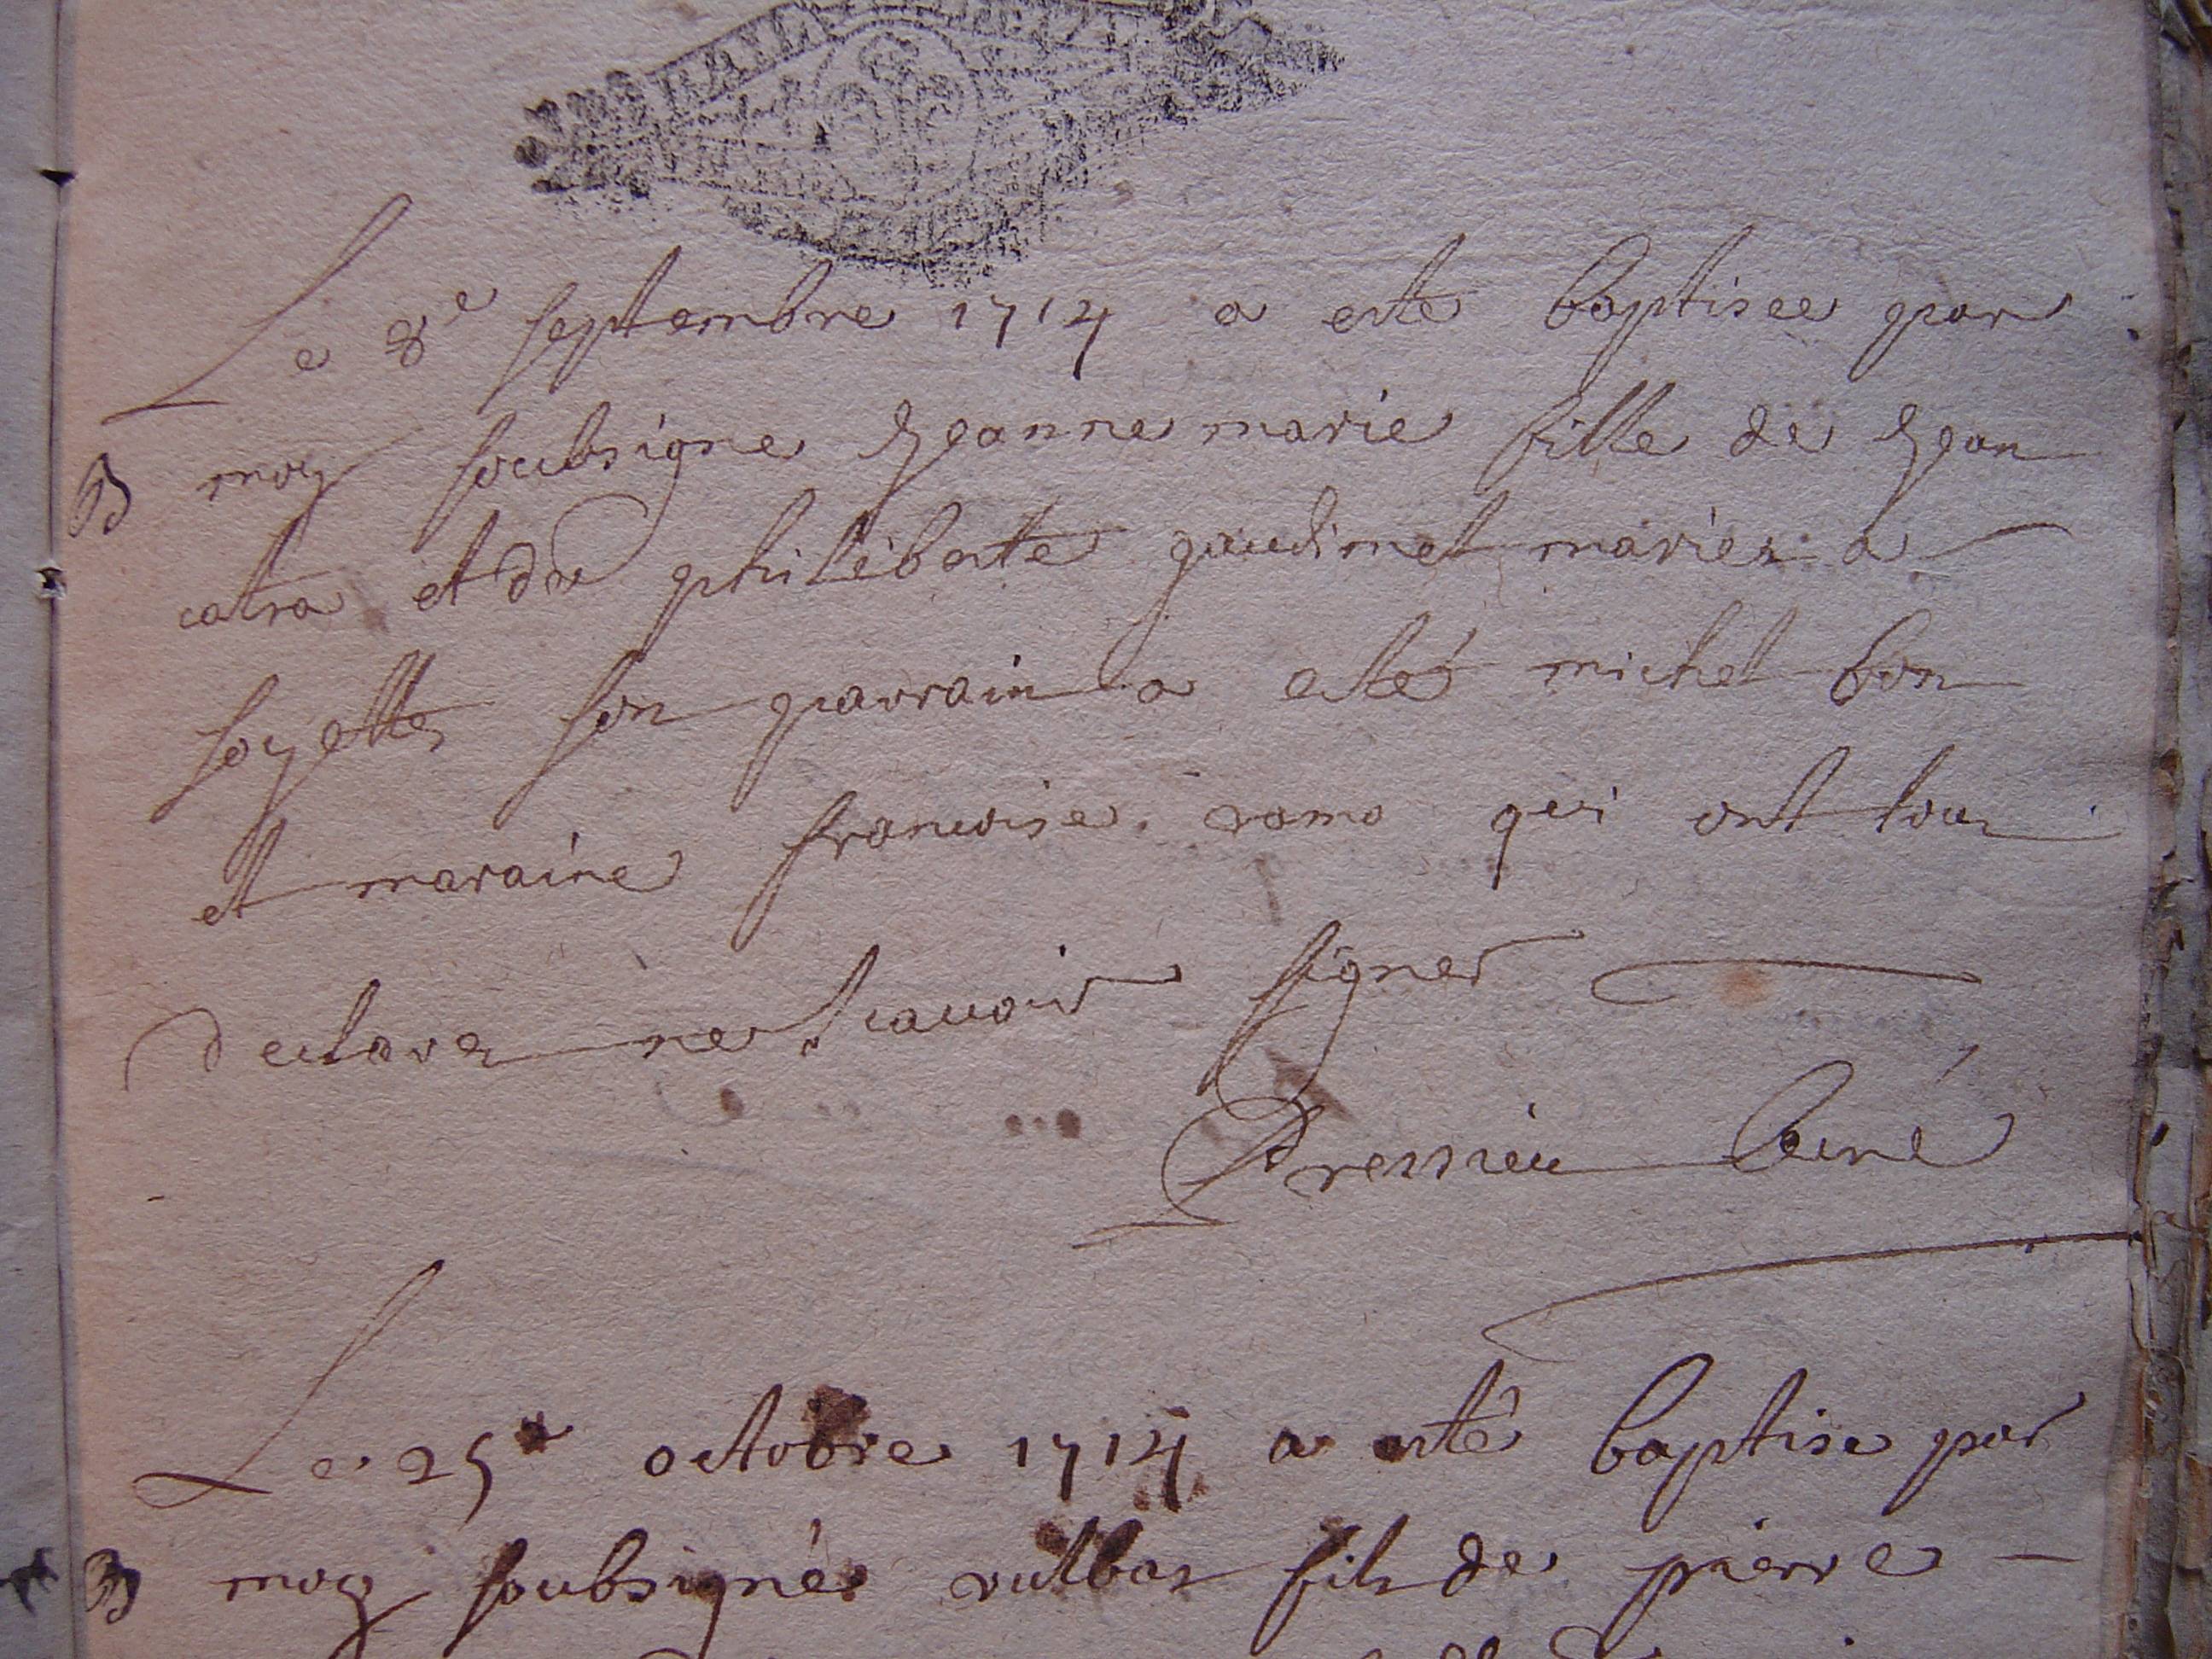 Le 8e septembre 1714 a esté baptisee par
B moy soubsigne Jeanne marie fille de Jean
catra et de philiberte gaudimet mariez a
soyette son parrain a esté michel bon
et maraine francoise rama qui ont tous
declarez ne scavoir signer
Dressieu Curé
Le 25e octobre 1714 a esté baptise par
B moy soubsigné vulbas fils de pierre